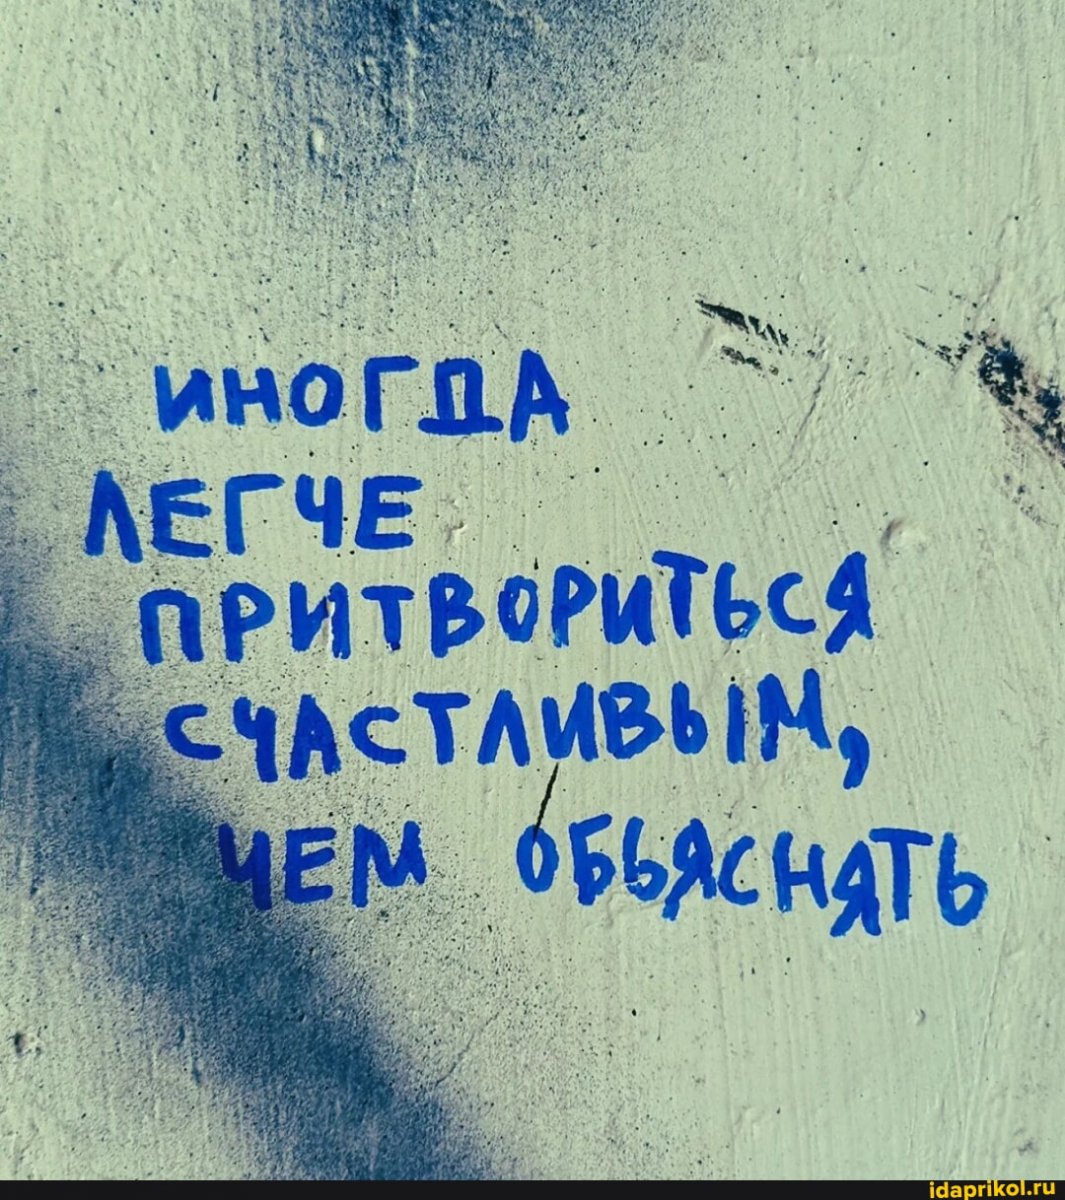 ИНОГДА
ЛЕГЧЕ
ПРИТВОРИТЬСЯ
СЧАСТЛИВЫМ,
ЧЕМ ОБЬЯСНЯТЬ
idaprikol.ru